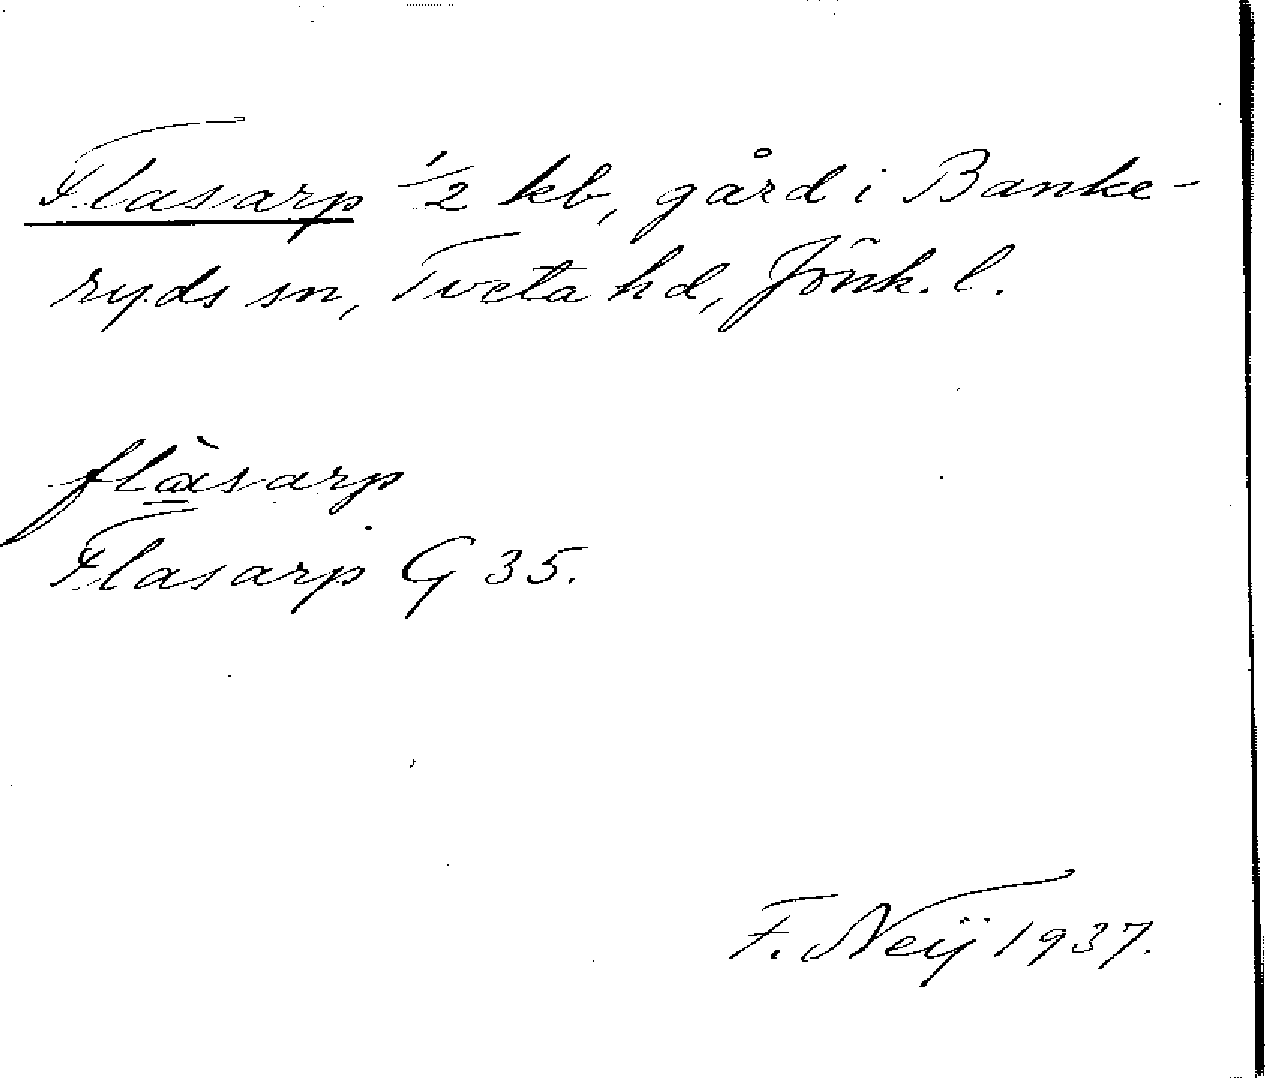 Flasarp 1/2 kb, gård i Banke-
ryds sn, Tveta hd, Jönk. l.
flàsarp
Flasarp G 35.
F. Neij 1937.